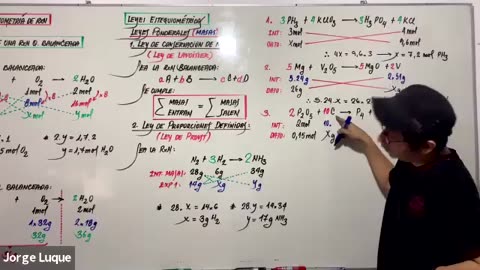 OMETRÍA DE RXN
UNA RXN Q. BALANCEADA:
BALANCEADA:
+ O₂ → 2 H₂O
1mol 2mol
* 2.y = 1,7.2
5 mol O₂ y = 1,7 mol H₂O
BALANCEADA:
+ O₂ → 2 H₂O
1mol 2mol
1.32g 2.18g
32g 36g
LEYES ESTEQUIOMÉTRICAS
LEYES PONDERALES (MASAS)
1. LEY DE CONSERVACIÓN DE
(LEY DE LAVOISIER)
SEA LA RXN BALANCEADA:
aA + bB → cC + dD
SE CUMPLE:
∑ MASAS ENTRAN = ∑ MASAS SALEN
2. LEY DE PROPORCIONES DEFINIDAS:
(LEY DE PROUST)
SEA LA RXN:
N₂ + 3 H₂ → 2 NH₃
28g 6g 34g
14g Xg Yg
* 28.x = 14.6 * 28.y = 14.34
x = 3g H₂ y = 17g NH₃
1. 3 PH₃ + 4 KClO₃ → 3 H₃PO₄ + 4 KCl
INT: 3mol 4mol
DATO: Xmol 9,6mol
∴ 4x = 9,6.3 → x = 7,2 mol PH₃
2. 5 Mg + V₂O₅ → 5 MgO + 2 V
INT: 5.24g 2.51g
DATO: Xg
∴ 5.24.x = 26.2
3. 2 P₂O₅ + 10 C → P₄ +
INT: 2mol 10.
DATO: 0,15mol Xg
Jorge Luque